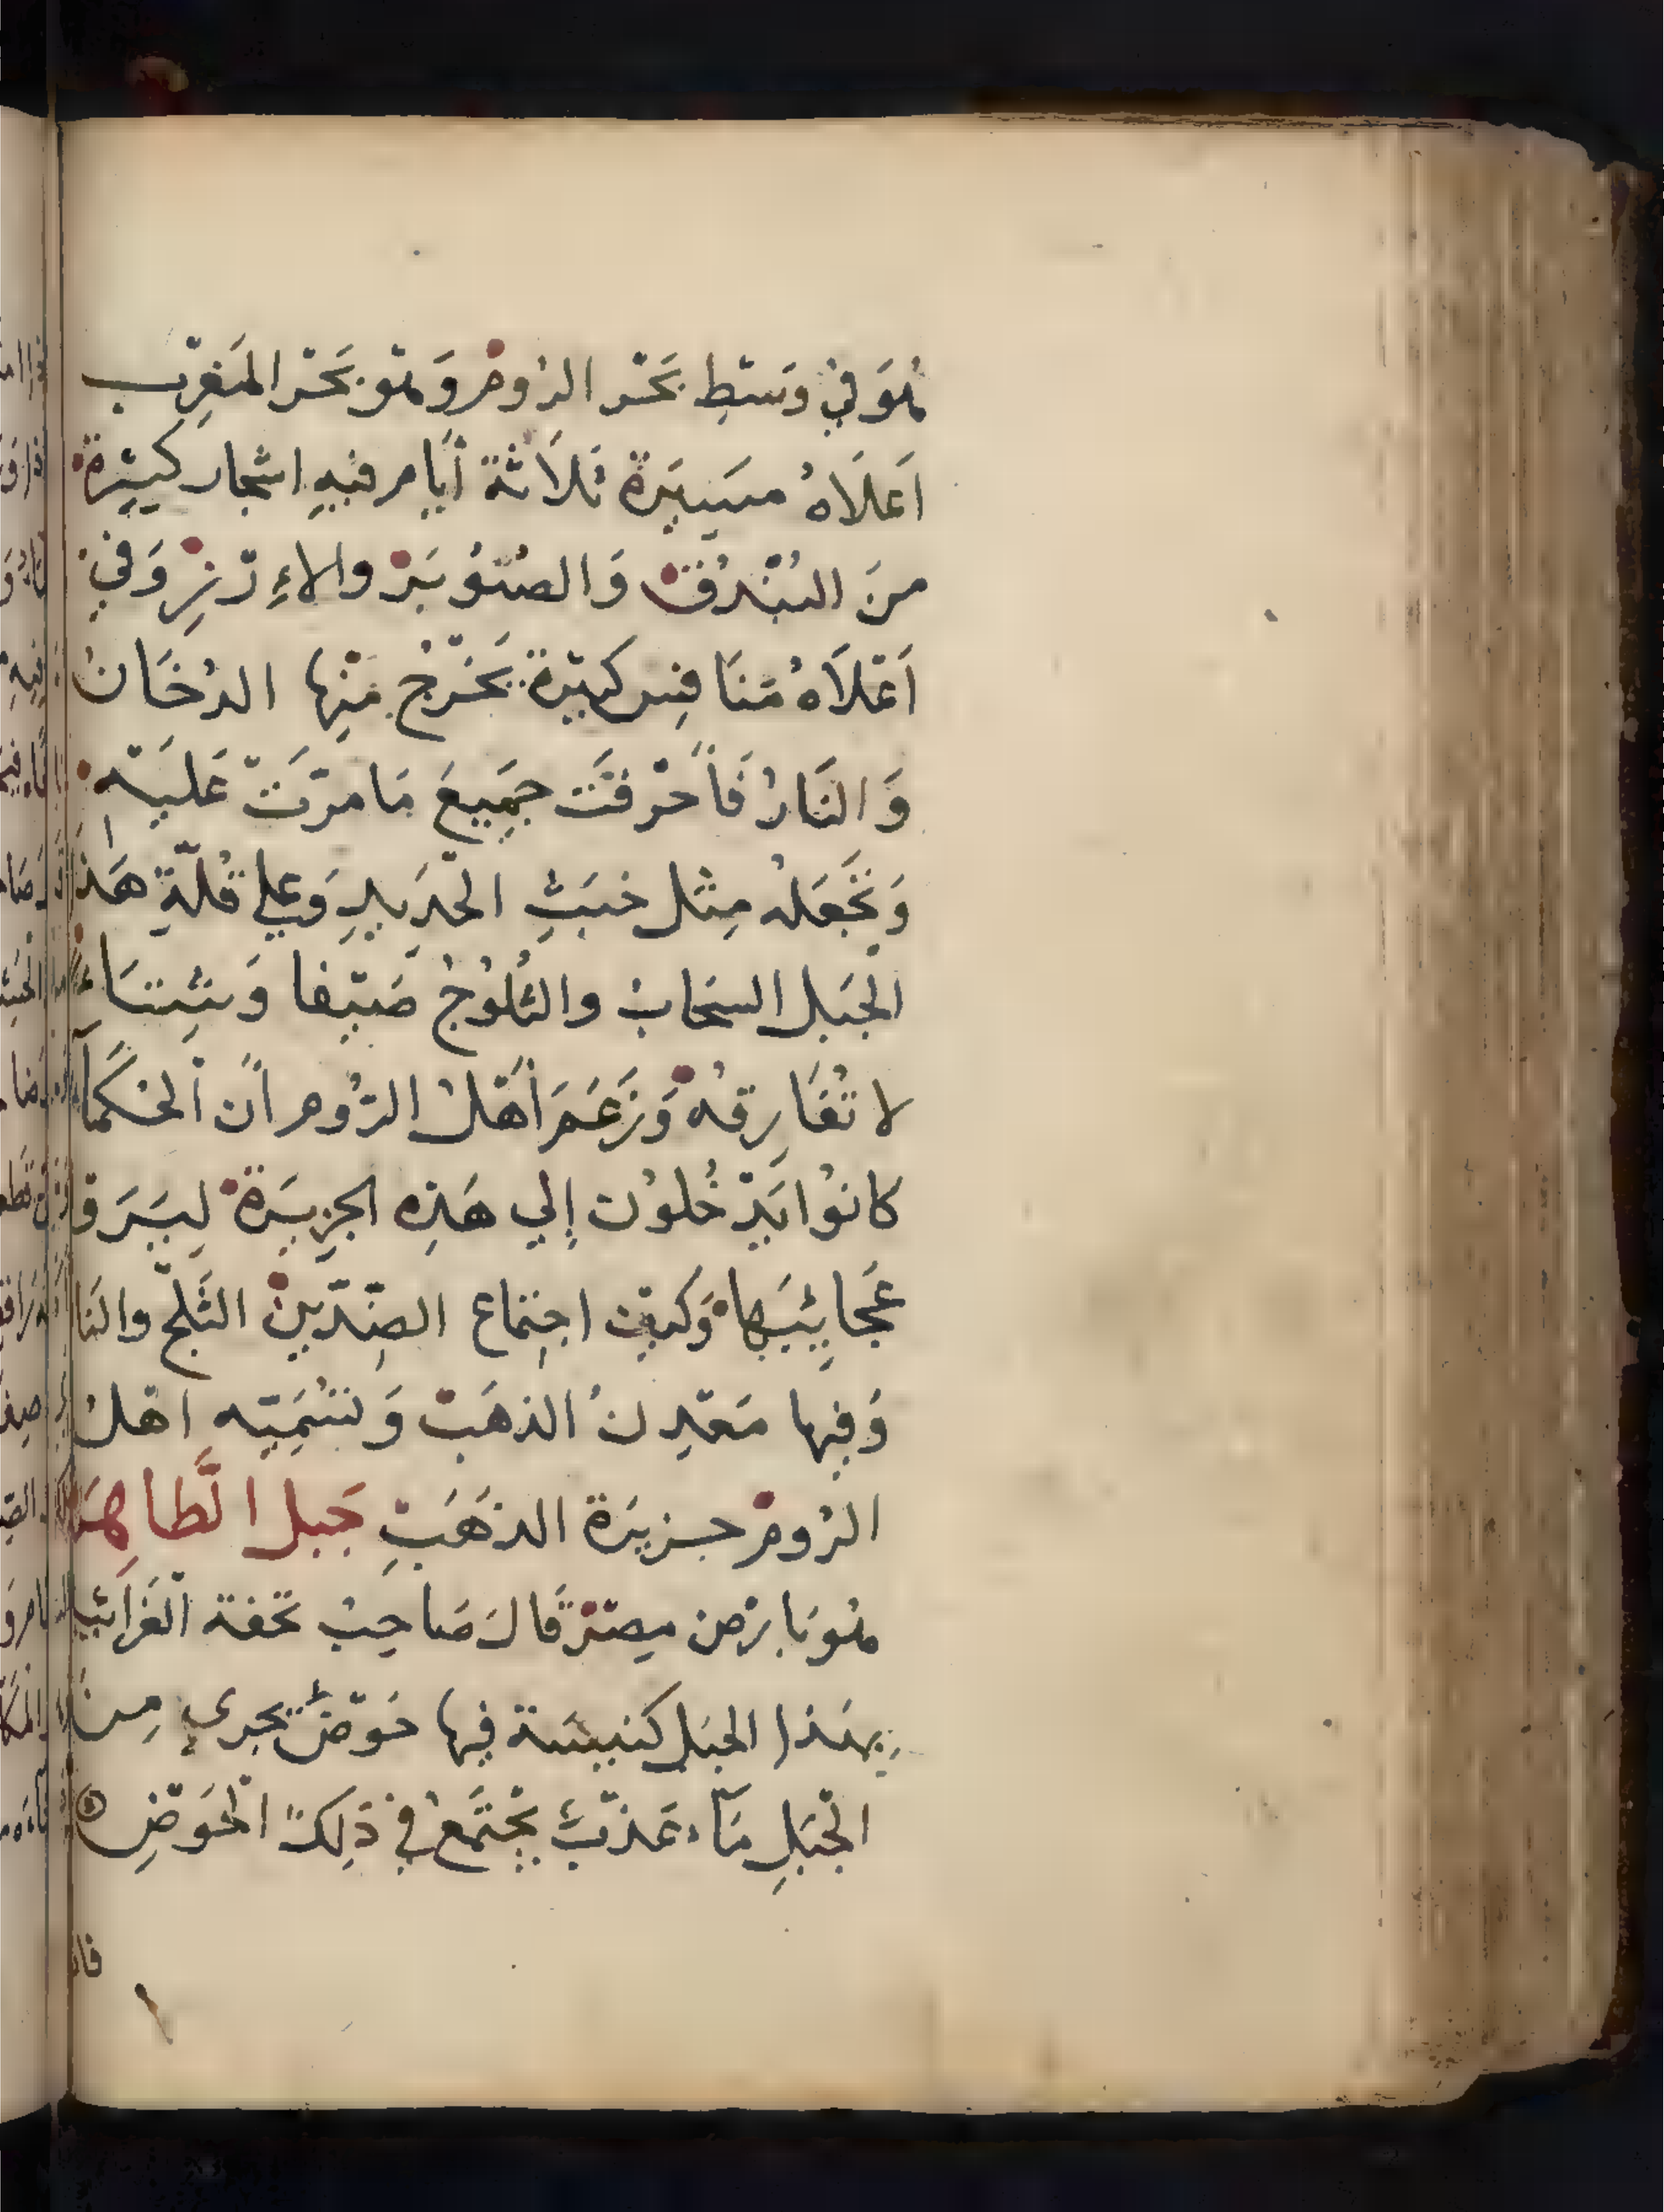 هُوَ في وَسَطِ بَحْر الرُومْ وَهْوَ بَحْر المَغرِب
اَعلَاهُ مسَيِيرَة ثلاَثة أيَام فيهِ اشجار كثِيرة
منَ البُنْدُقْ وَالصُنوُبَرْ والاءِرْنِزِ وَفي
اَعْلَاهُ مَنَافِس كبيْرة يَخْرُج مِنْها الدُخَانُ
وَالنَارُ فَأَحْرقَت جمَيعَ مَا مرّتْ عَليَه
وَتَجعَلهُ مِثل خبَثِ الحْدِيدِ وَعلي قُلّةِ هَذا
الجبَل السَحَابُ والثلُوُجُ صَيْفا وَشِتَاءً
لا تفَارِقهُ وَزَعَمَ أَهْلُ الرُوم أنَ الحُكمَآ
كانوُا يَدْخُلوُن إلي هَذِه الجزِيرَة لِيَرَوْ
عَجَايِئبَها وَكيف اجتِماع الضِدّيِنْ الثَلْج والنَا
وَفِيها مَعْدِنُ الذهَبْ وَتسُمَيِّه اهْلُ
الرُومْ جزيرَة الذهَبِ جَبل الطَاهِرَ
هُوَ بارْض مِصْرْ قَالَ صَاحِبُ تحفة الغَرَائب
بهَذا الجبَل كنيسَة فِيها حَوْضٌ يَجري مِنَ
الجْبَلِ مَآء عَذْبٌ يجْتَمَعُ في ذَلِكَ الحْوَضِ
فاذ